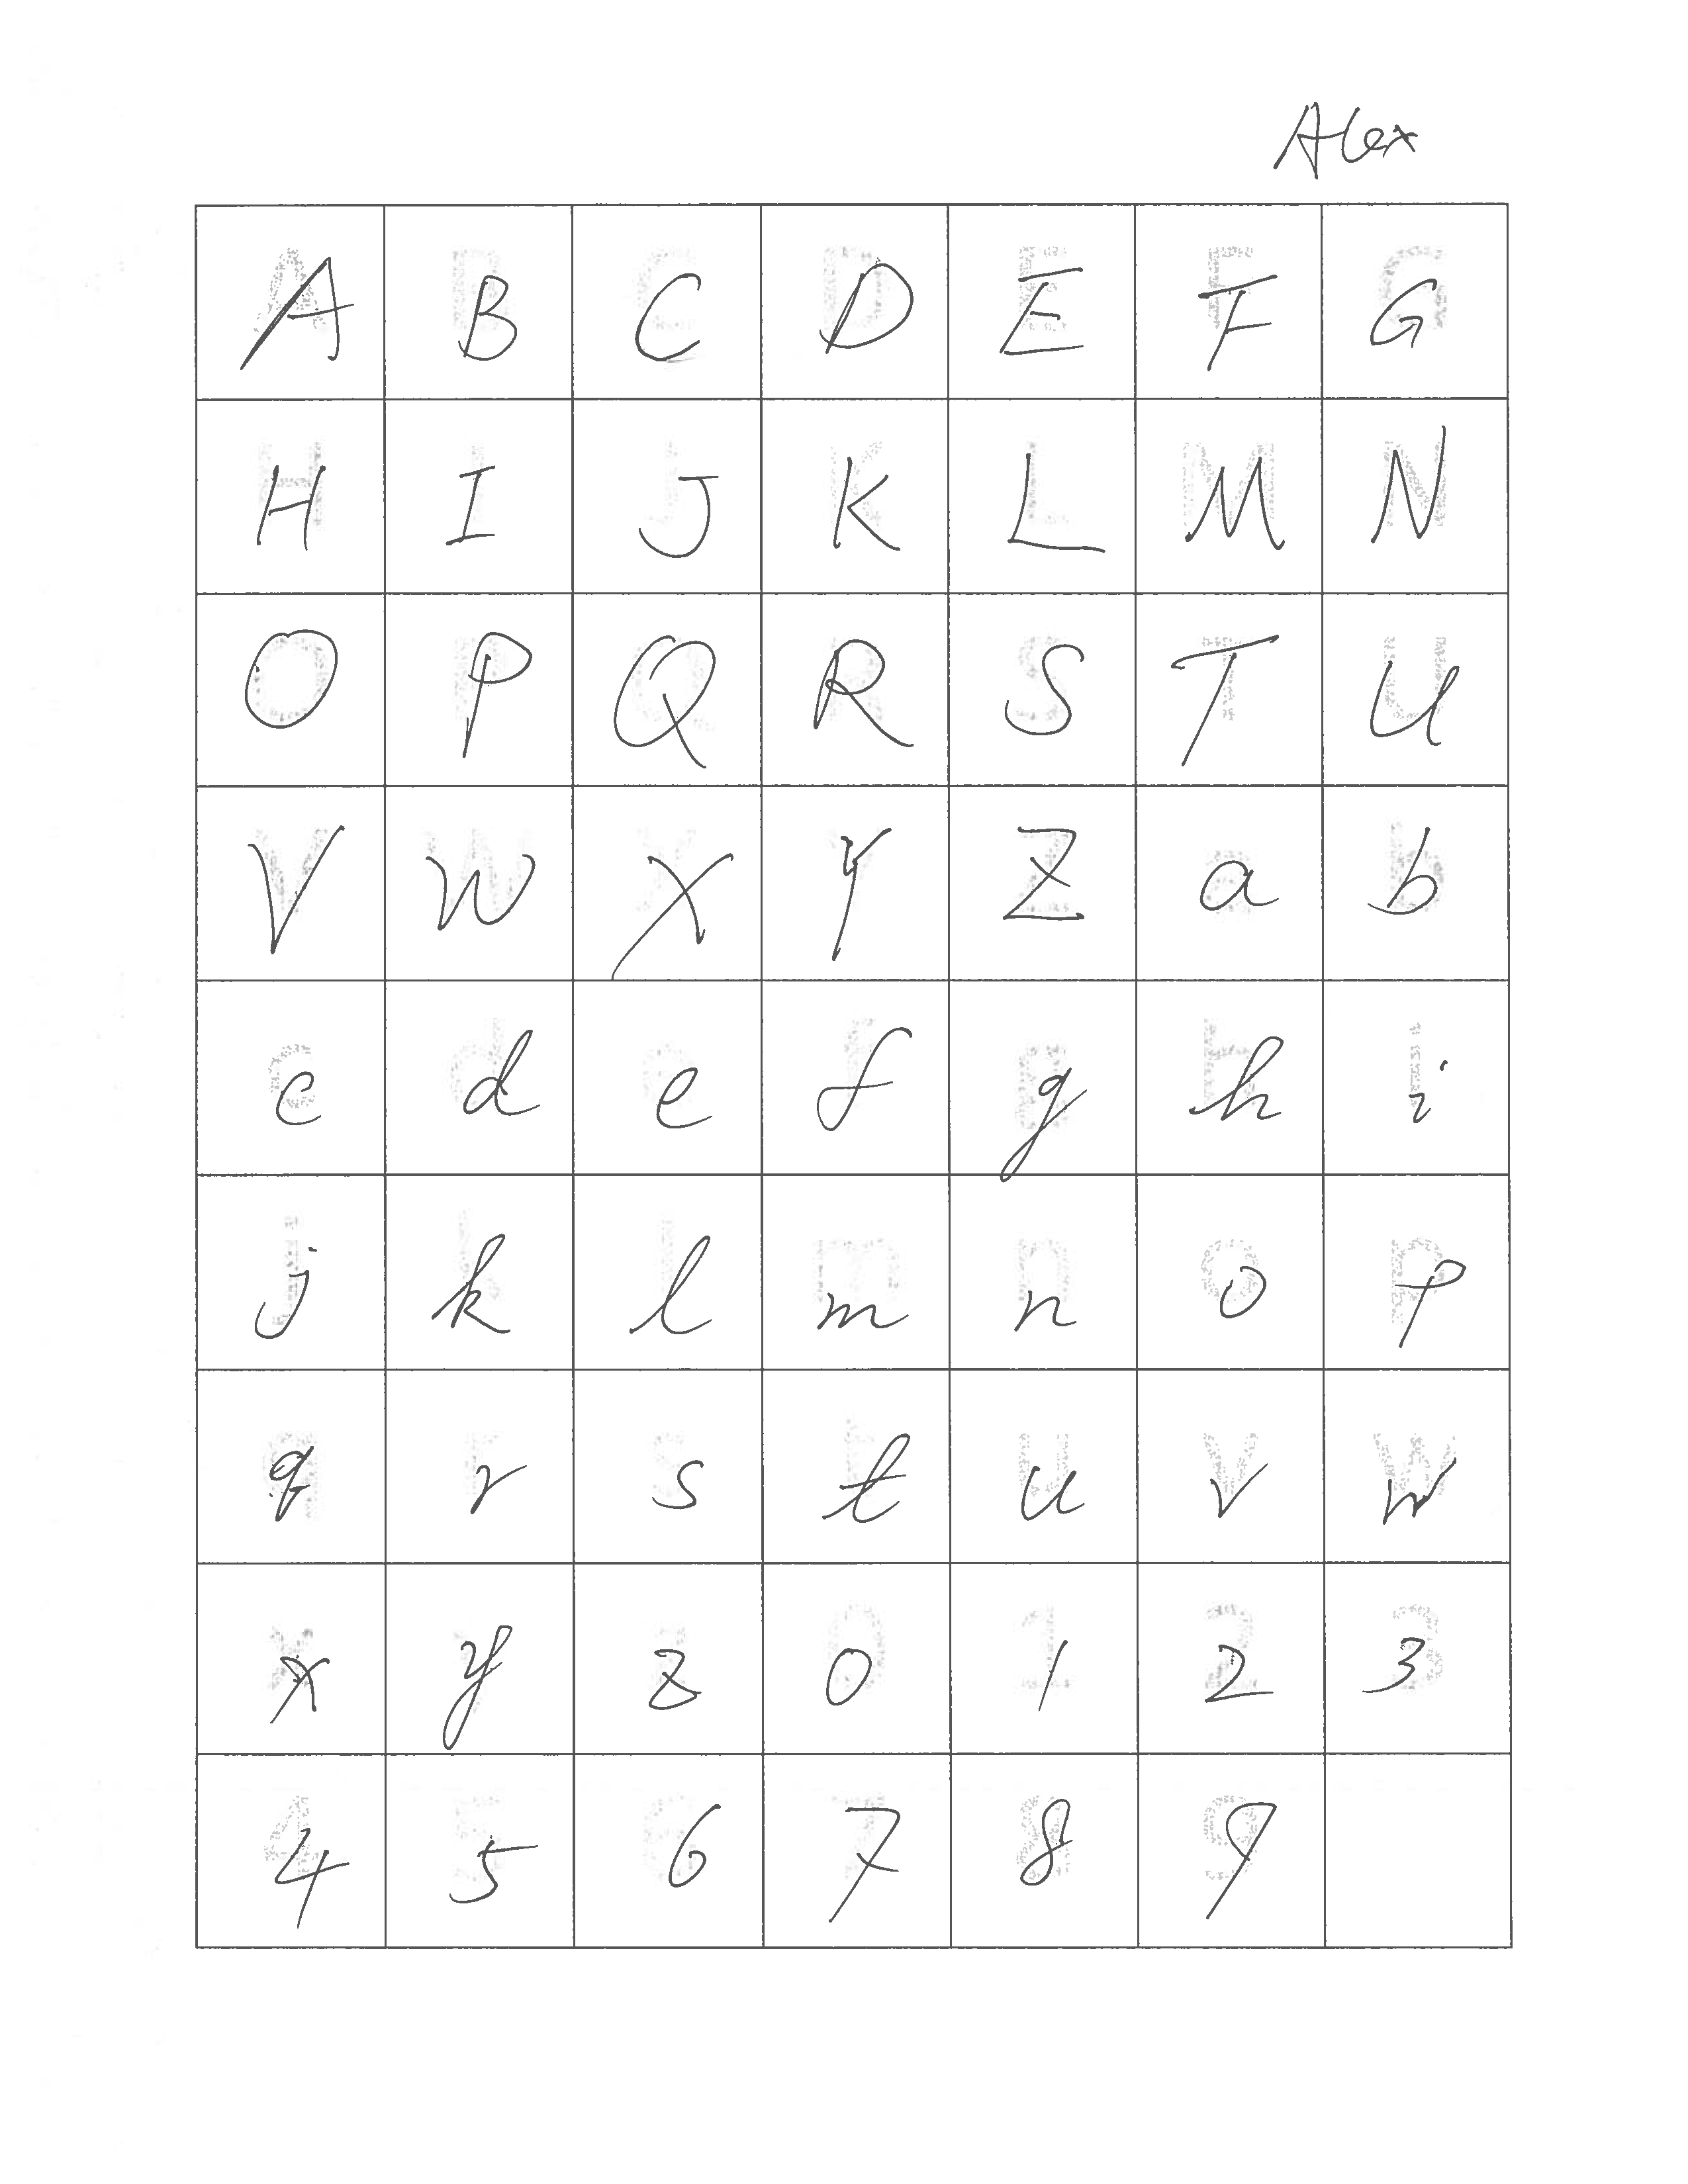 Alex
A B C D E F G
H I J K L M N
O P Q R S T U
V W X Y Z a b
c d e f g h i
j k l m n o p
q r s t u v w
x y z 0 1 2 3
4 5 6 7 8 9